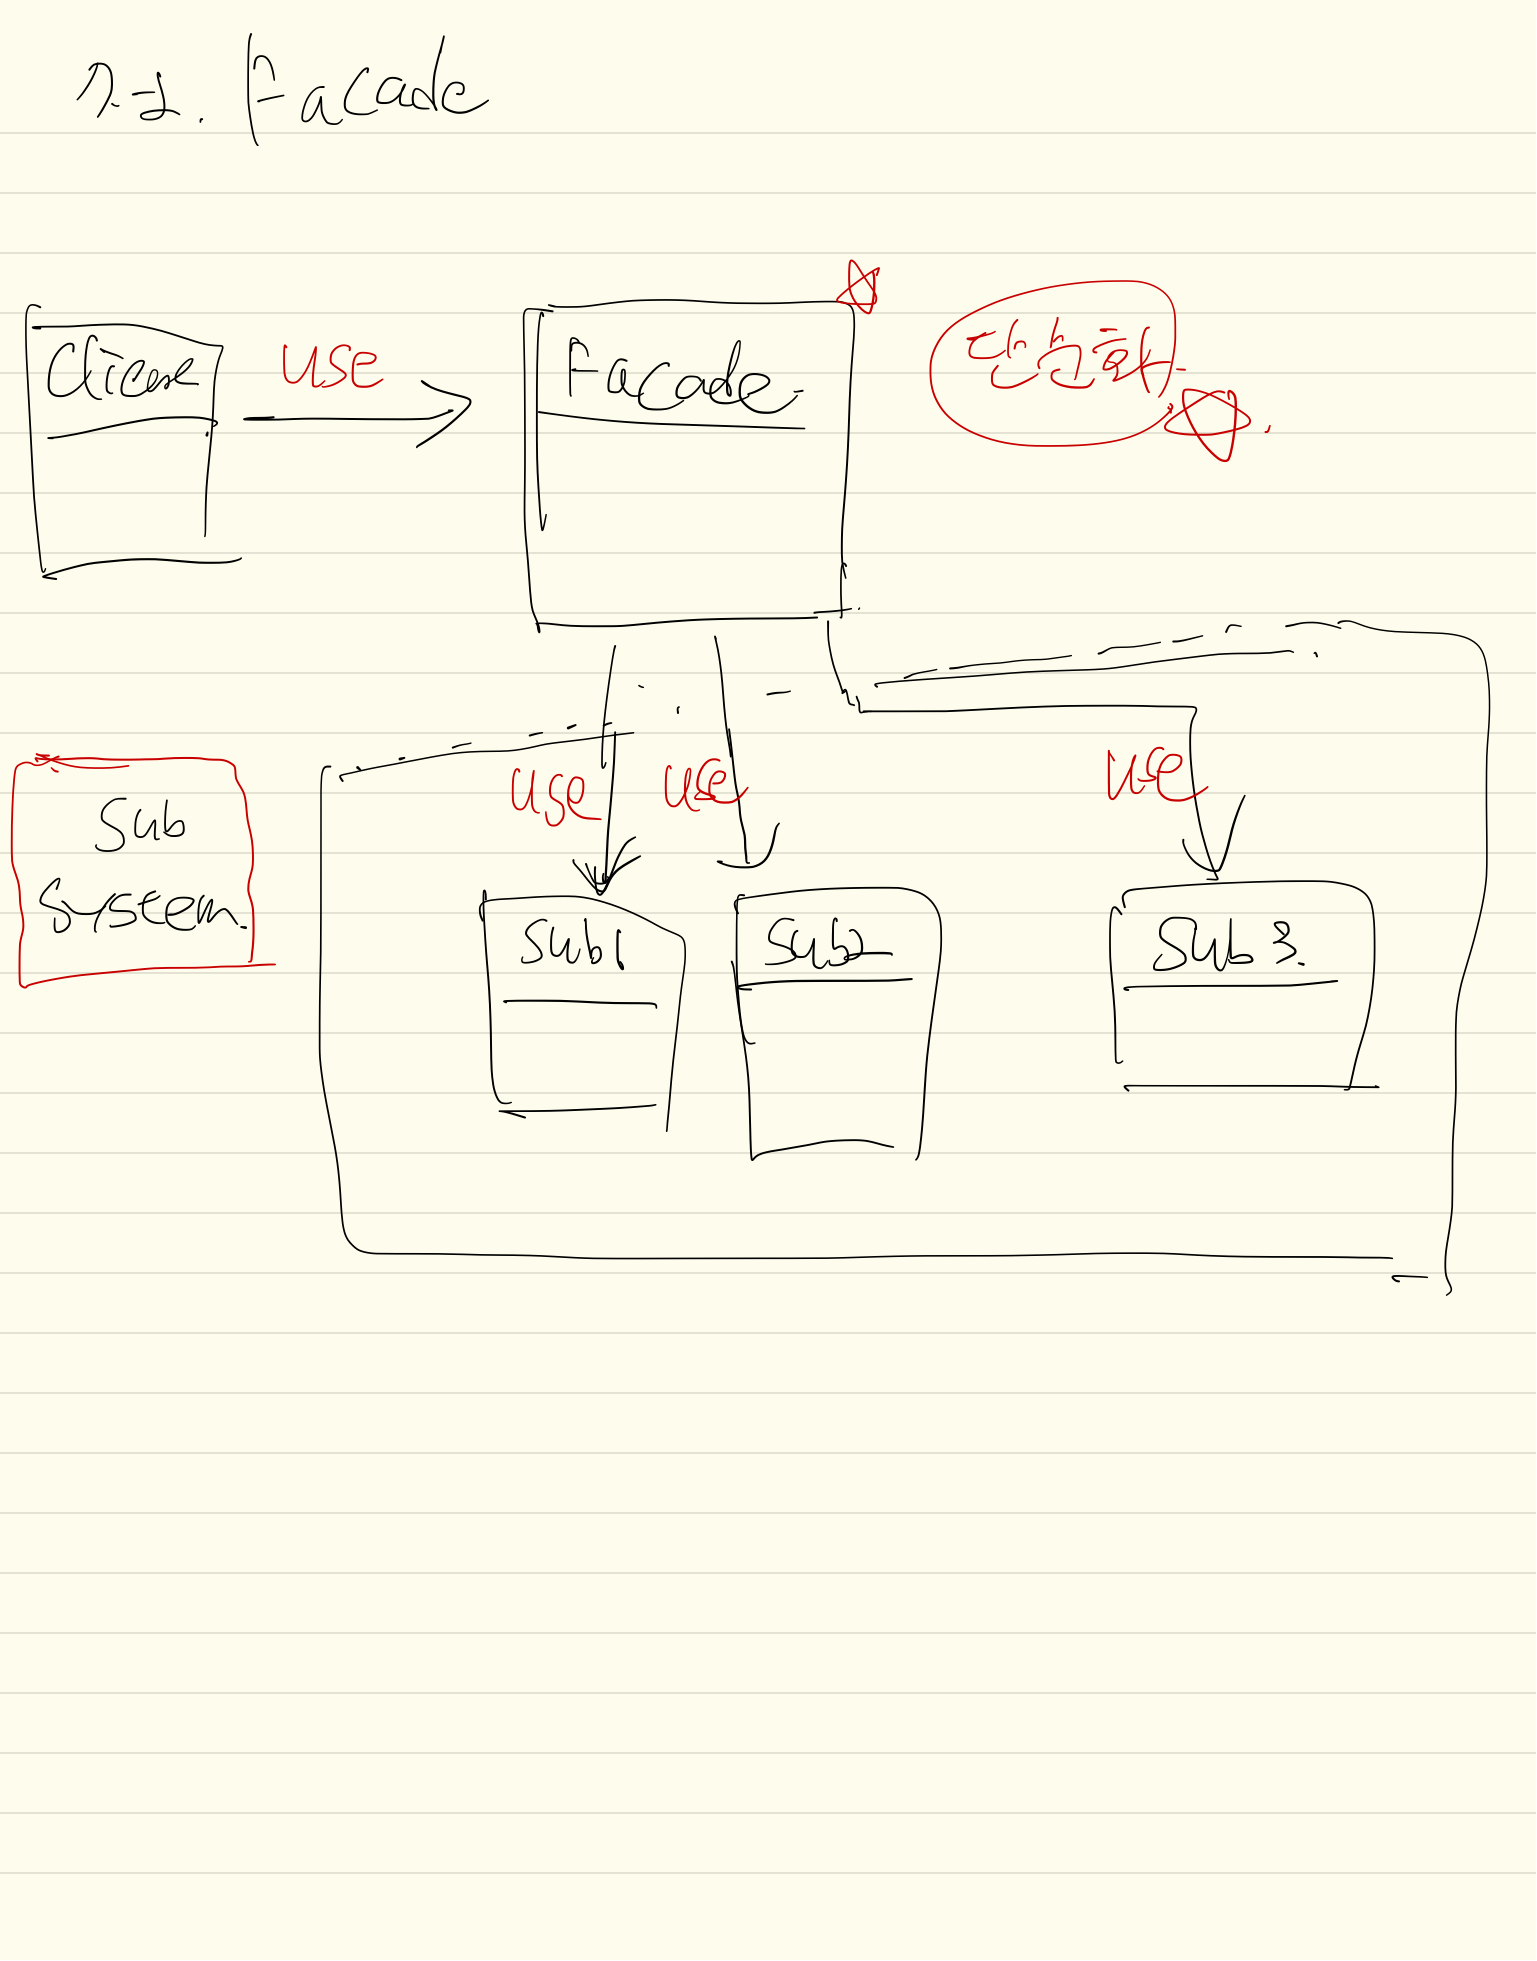 7-2. Facade
Client
use
Facade
단순화
use
use
use
Sub
System
Sub1
Sub2
Sub 3